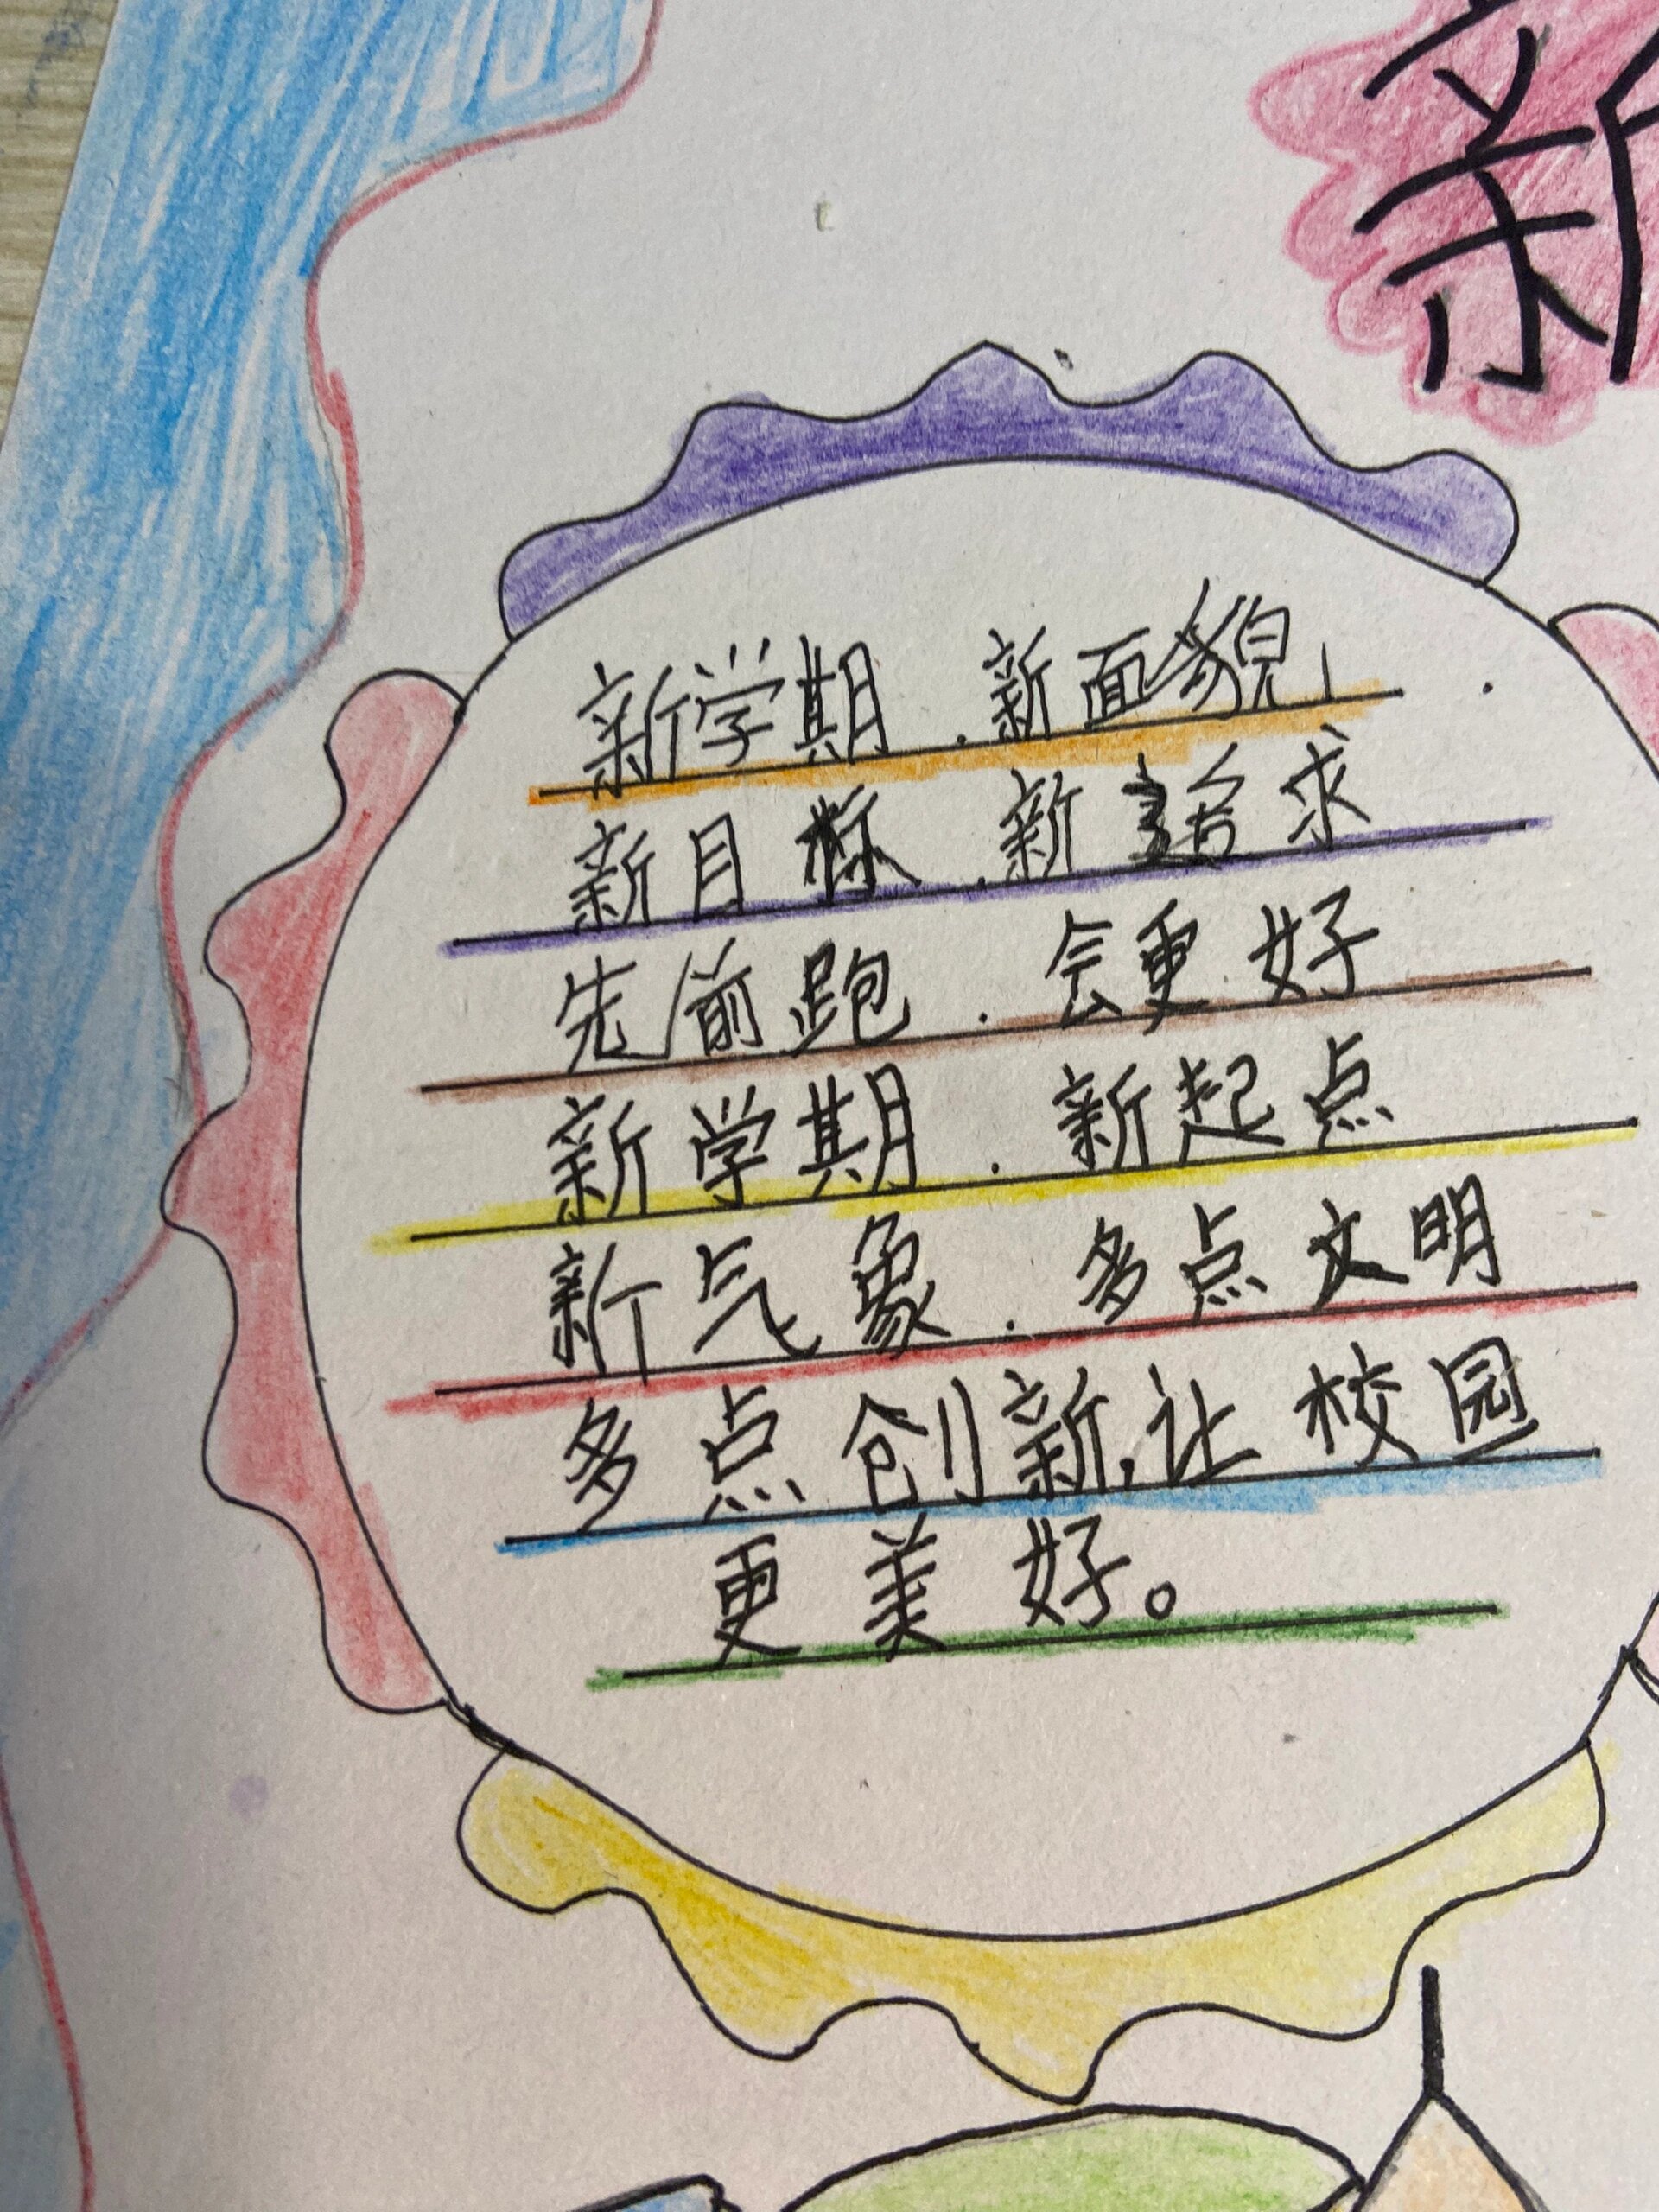 新
新学期.新面貌,
新目标.新 求
先前跑.会更好
新学期.新起点
新气象.多点文明
多点创新,让校园
更美好。